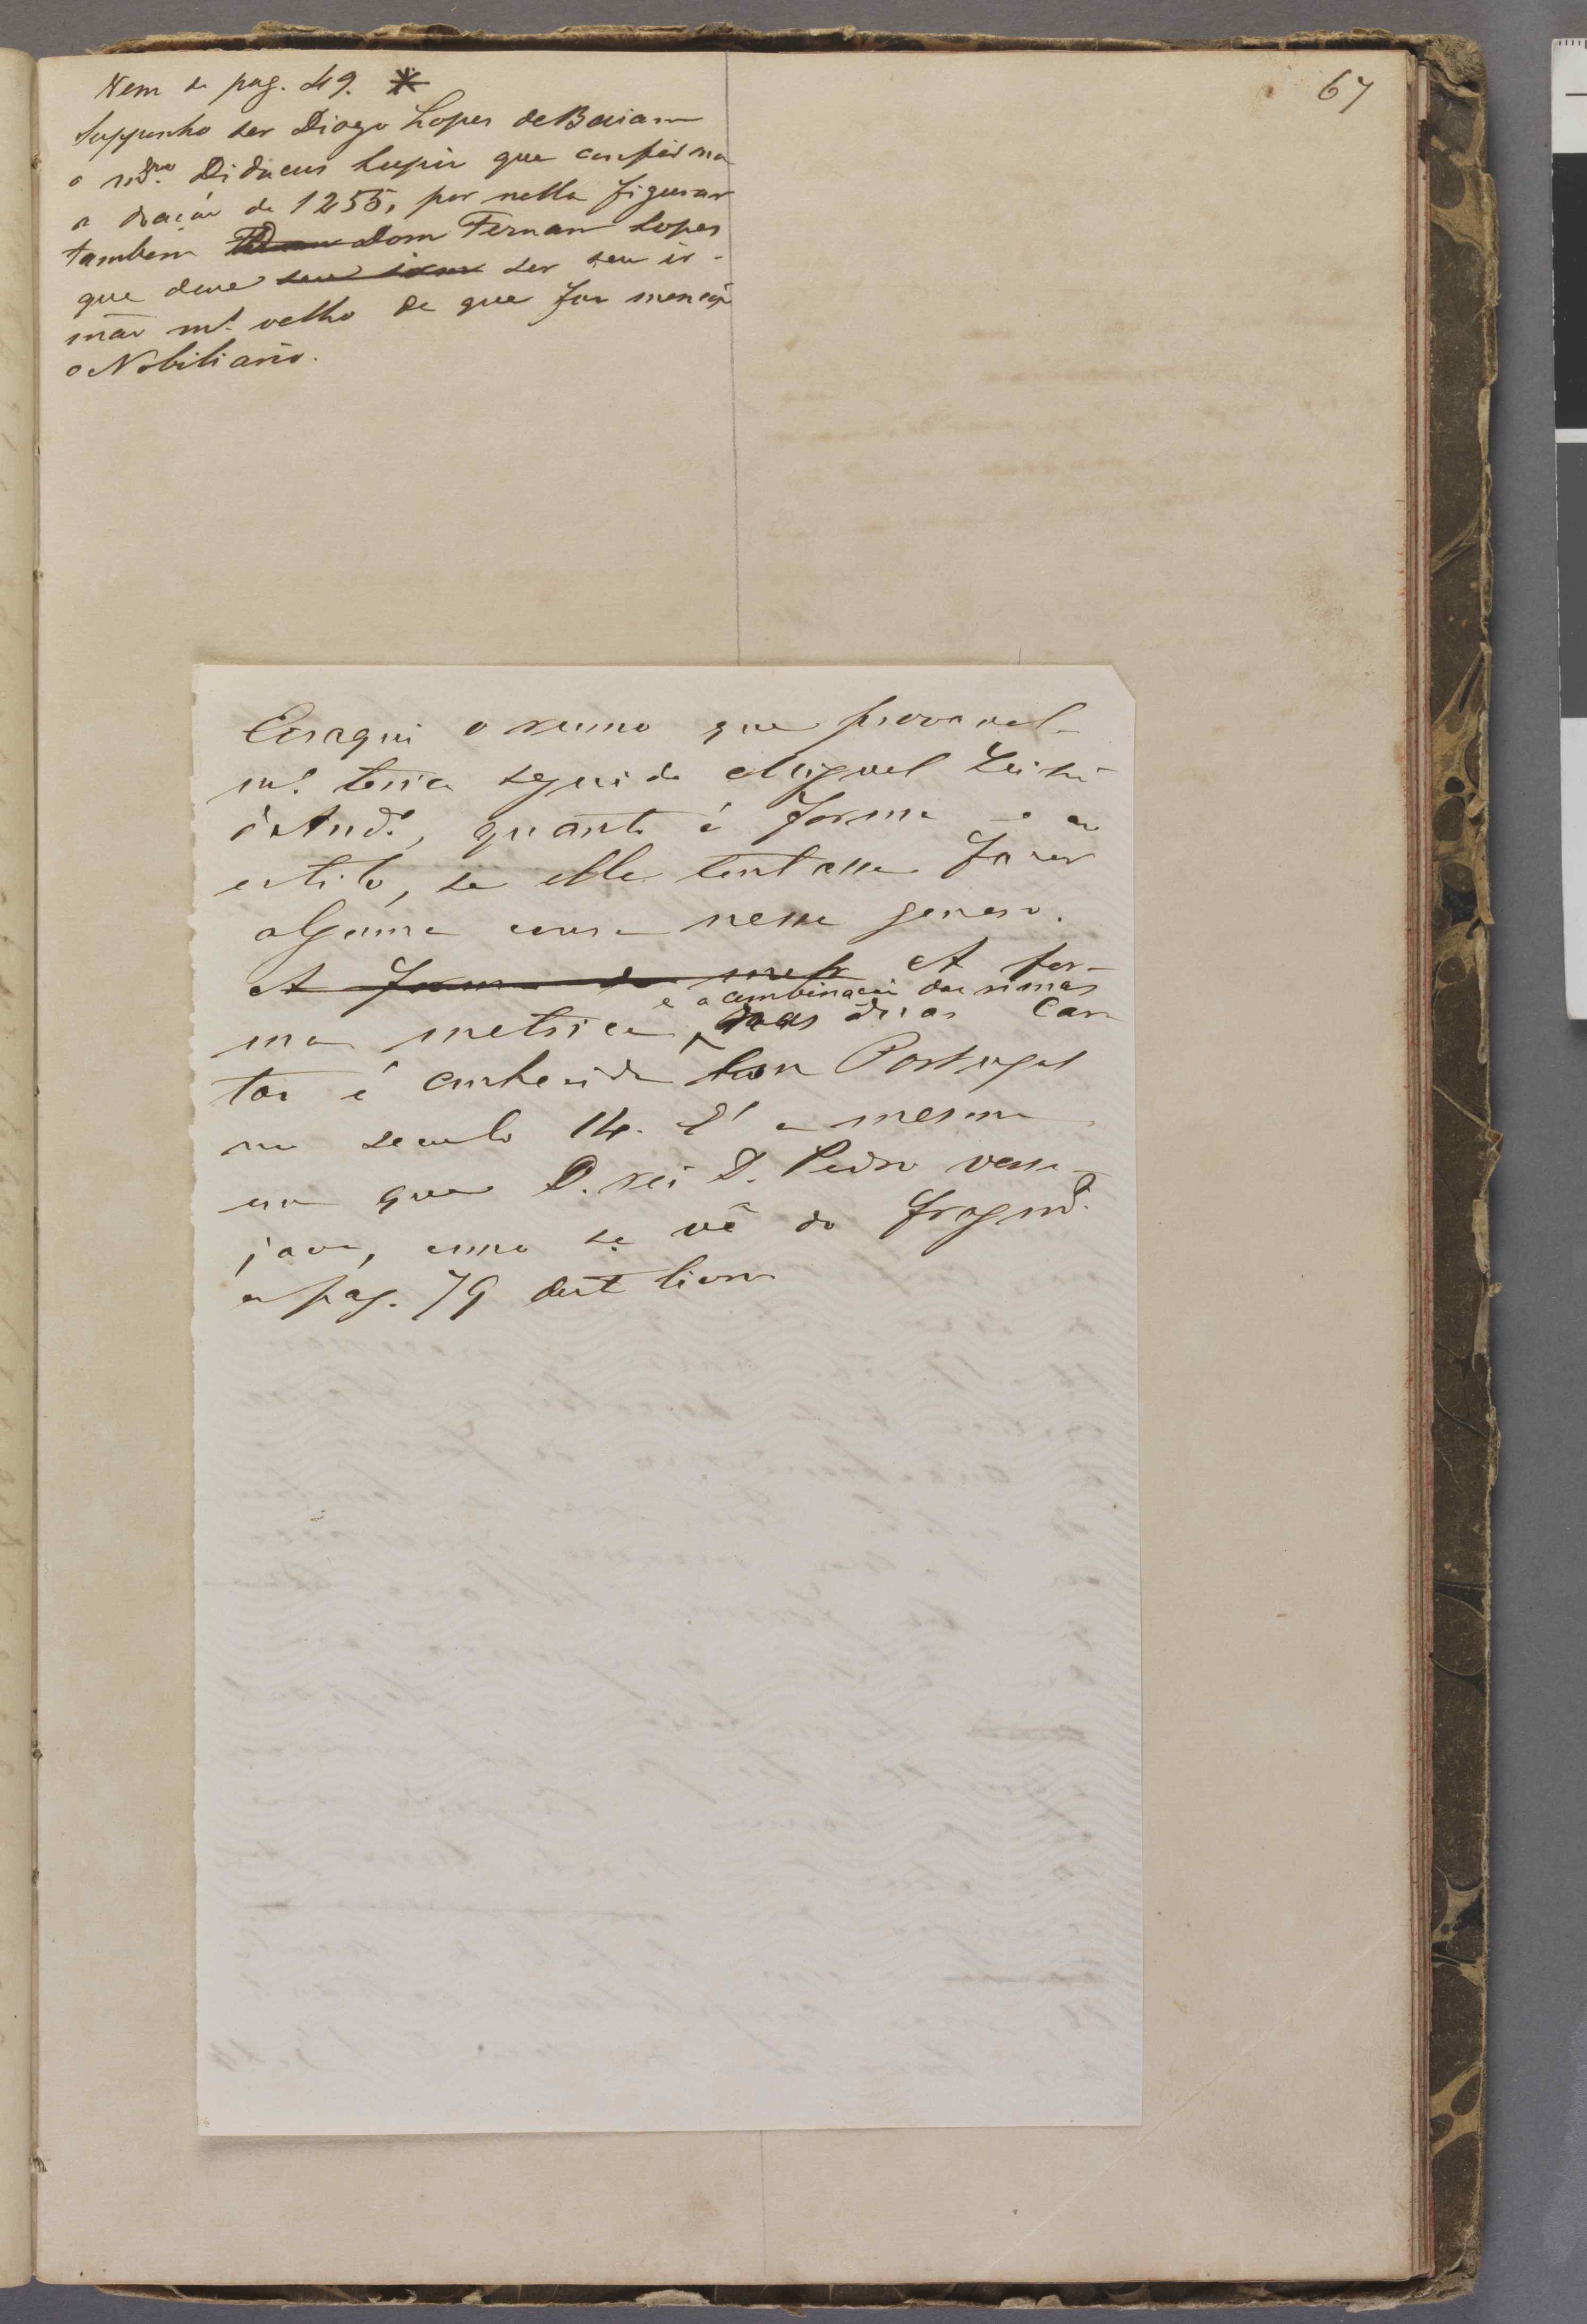 67
Vem de pag. 49. *
Suppunho ser Diogo Lopes de Baiam
o Didacus Lupi que confirma
a doação de 1255, por nella figurar
tambem Dom Fernam Lopes
que deve seu irmão ser seu ir-
mão m.s velho de que faz menção
o Nobiliario.
Eis aqui o rumo que provavel-
m.e teria seguido Miguel Leitão
d'And.e, quanto á forma e ao
estilo, se elle tentasse fazer
alguma cousa nesse genero.
A forma da metr A for-
e a combinação das rimas
ma metrica das duas Can
tos é conhecida em Portugal
no seculo 14. E' a mesma
em que D. rei D. Pedro verse-
java, como se vê do fragm.to
a pag. 79 deste livro